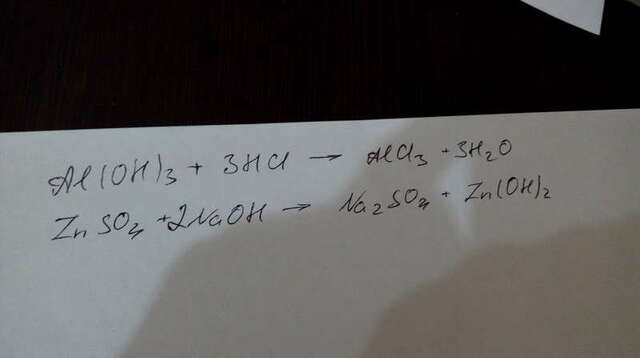 Al(OH)3 + 3HCl → AlCl3 + 3H2O
ZnSO4 + 2NaOH → Na2SO4 + Zn(OH)2